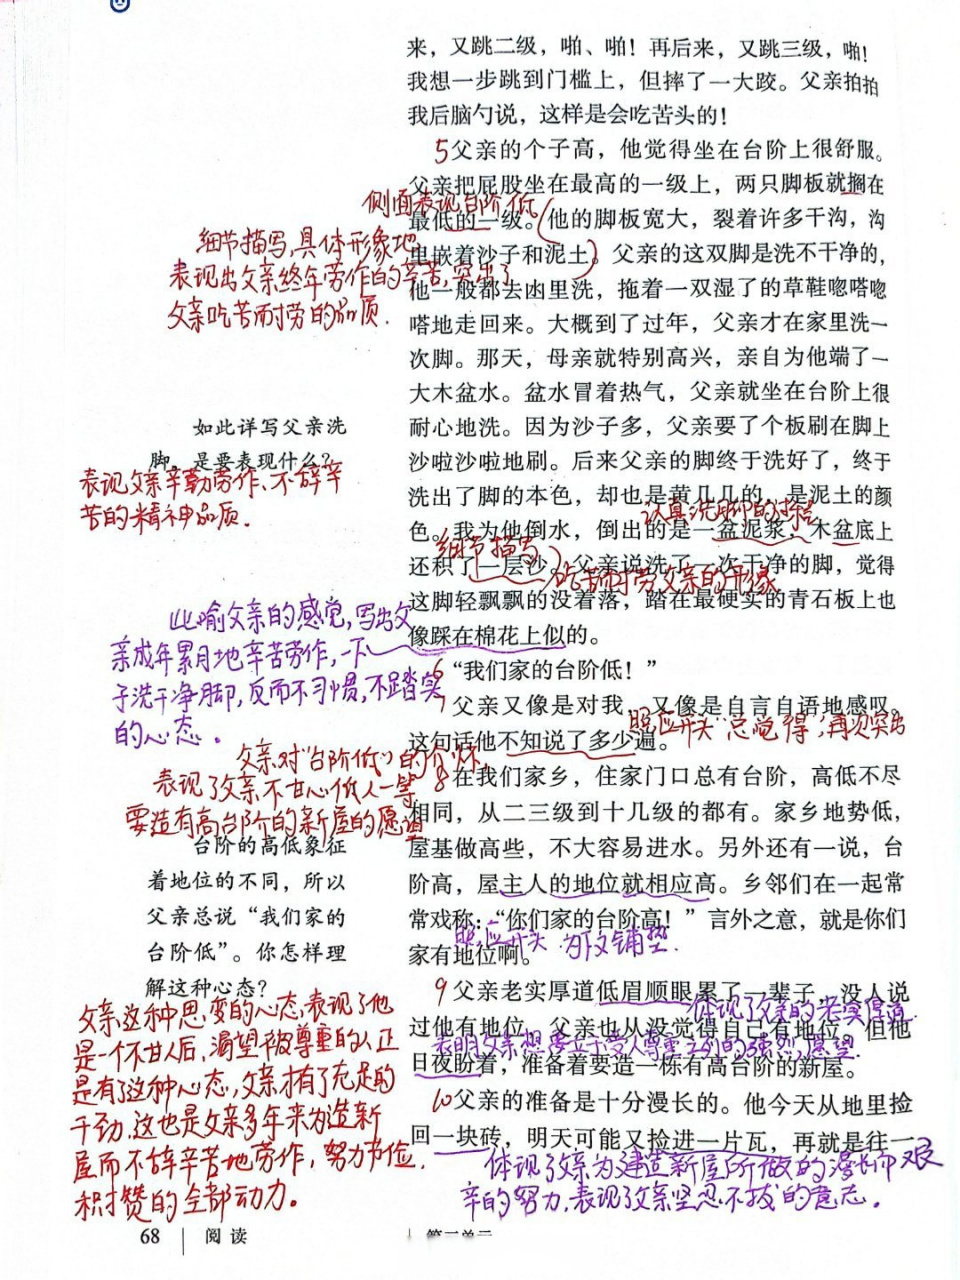 来，又跳二级，啪、啪！再后来，又跳三级，啪！
我想一步跳到门槛上，但摔了一大跤。父亲拍拍
我后脑勺说，这样是会吃苦头的！
5父亲的个子高，他觉得坐在台阶上很舒服。
父亲把屁股坐在最高的一级上，两只脚板就搁在
侧面表现台阶低
最低的一级。他的脚板宽大，裂着许多干沟，沟
细节描写，具体形象地
里嵌着沙子和泥土。父亲的这双脚是洗不干净的，
表现出父亲终年劳作的辛苦，突出了
他一般都去凼里洗，拖着一双湿了的草鞋唿嗒唿
父亲吃苦耐劳的品质.
嗒地走回来。大概到了过年，父亲才在家里洗一
次脚。那天，母亲就特别高兴，亲自为他端了一
大木盆水。盆水冒着热气，父亲就坐在台阶上很
耐心地洗。因为沙子多，父亲要了个板刷在脚上
沙啦沙啦地刷。后来父亲的脚终于洗好了，终于
洗出了脚的本色，却也是黄几几的，是泥土的颜
色。我为他倒水，倒出的是一盆泥浆，木盆底上
还积了一层沙。父亲说洗了一次干净的脚，觉得
这脚轻飘飘的没着落，踏在最硬实的青石板上也
像踩在棉花上似的。
如此详写父亲洗
脚，是要表现什么？
表现父亲辛勤劳作、不辞辛
苦的精神品质.
认真洗脚的
细节描写
吃苦耐劳父亲的形象
比喻父亲的感觉，写出父
亲成年累月地辛苦劳作，一下
子洗干净脚，反而不习惯，不踏实
的心态。
6“我们家的台阶低！”
7父亲又像是对我，又像是自言自语地感叹。
这句话他不知说了多少遍。
照应开头“总觉得”，再次突出
父亲对“台阶低”的
表现了父亲不甘心低人一等
要造有高台阶的新屋的愿望
8在我们家乡，住家门口总有台阶，高低不尽
相同，从二三级到十几级的都有。家乡地势低，
屋基做高些，不大容易进水。另外还有一说，台
阶高，屋主人的地位就相应高。乡邻们在一起常
常戏称：“你们家的台阶高！”言外之意，就是你们
家有地位啊。
照应开头 为下文铺垫.
台阶的高低象征
着地位的不同，所以
父亲总说“我们家的
台阶低”。你怎样理
解这种心态？
父亲这种思变的心态，表现了他
是一个不甘人后，渴望被尊重的人，正
是有了这种心态，父亲才有了充足的
干劲，这也是父亲多年来为造新
屋而不辞辛苦地劳作，努力
积攒的全部动力。
9父亲老实厚道低眉顺眼累了一辈子，没人说
体现了父亲的老实厚道
过他有地位，父亲也从没觉得自己有地位。但他
表明父亲想要立于受人尊重之列的强烈愿望.
日夜盼着，准备着要造一栋有高台阶的新屋。
10父亲的准备是十分漫长的。他今天从地里捡
回一块砖，明天可能又捡进一片瓦，再就是往一
体现了父亲为建造新屋所做的漫长而艰
辛的努力，表现了父亲坚忍不拔的意志。
68 阅读
第三单元